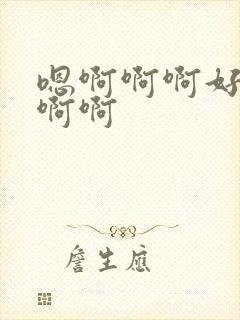 嗯啊啊啊好
啊啊
詹生应